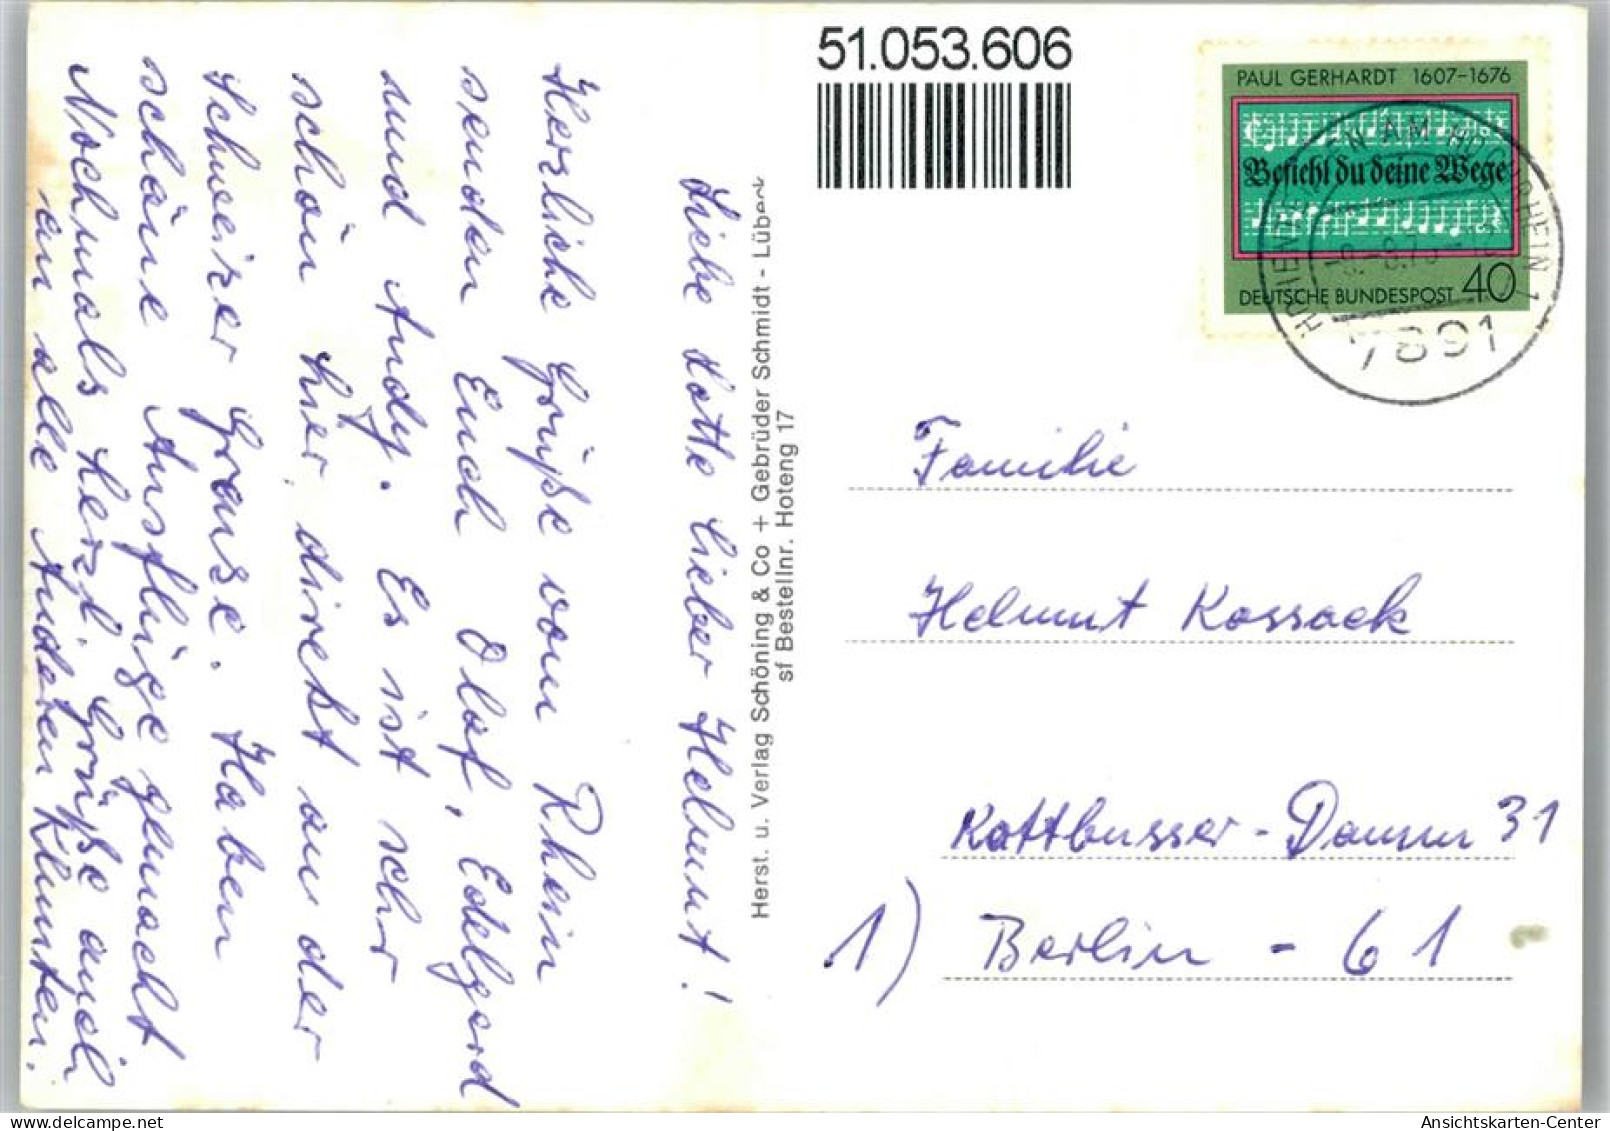 51.053.606
PAUL GERHARDT 1607-1676
Befiehl du deine Wege
DEUTSCHE BUNDESPOST 40
AM HOCHRHEIN 1
7891
Liebe Lotte lieber Helmut!
Herzliche Grüße vom Rhein
senden Euch Olaf, Edelgard
und Andy. Es ist sehr
schön hier, direkt an der
Schweizer Grenze. Haben
schöne Ausflüge gemacht
Nochmals herzl. Grüße auch
an alle Anderen Klunten.
Herst. u. Verlag Schöning & Co + Gebrüder Schmidt - Lübeck
sf Bestellnr. Hoteng 17
Familie
Helmut Kossack
Kottbusser-Damm 31
1) Berlin - 61
Ansichtskarten-Center